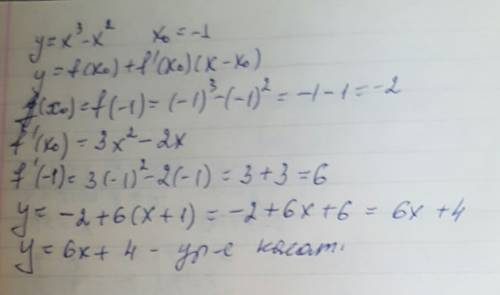 y = x³ - x²   x₀ = -1
y = f(x₀) + f'(x₀)(x - x₀)
f(x₀) = f(-1) = (-1)³ - (-1)² = -1 - 1 = -2
f'(x₀) = 3x² - 2x
f'(-1) = 3(-1)² - 2(-1) = 3 + 3 = 6
y = -2 + 6(x + 1) = -2 + 6x + 6 = 6x + 4
y = 6x + 4 - ур-е касат.